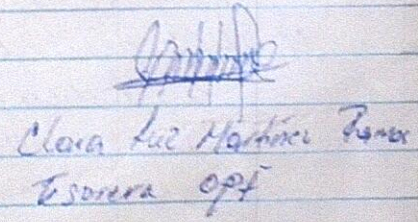 Clara Luz Martínez Ramos
Tesorera OPF